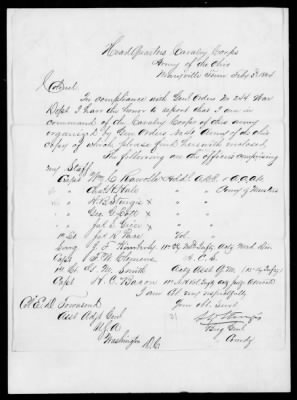 Headquarters Cavalry Corps
Army of the Ohio
Maryville Tenn Feby 5th 1864
Colonel
In compliance with Genl Orders No 244 War
Dept I have the honor to report that I am in
command of the Cavalry Corps of this army
organized by Gen Orders No Army of the Ohio
copy of which please find herewith enclosed.
The following are the officers comprising
my Staff
Capt Wm C Rawolle A.D.C. A.A.A.G.
" Chas H. Hale Comy of Musters
" S Sturgis x
" Geo G x
" Jas E. Greer x
1st Lt Jas R.
Surg J F Kimberly Med. Direc
Capt E. M Clemens A. C. S.
1st Lt M. Smith Actg Asst Q.M
Capt H. C. Bacon
I am Col very respectfully
Your obt. Servt.
Col E. D. Townsend
Asst Adjt Genl
U.S.A.
Washington D.C.
S D Sturgis
Brig Genl
Comdg